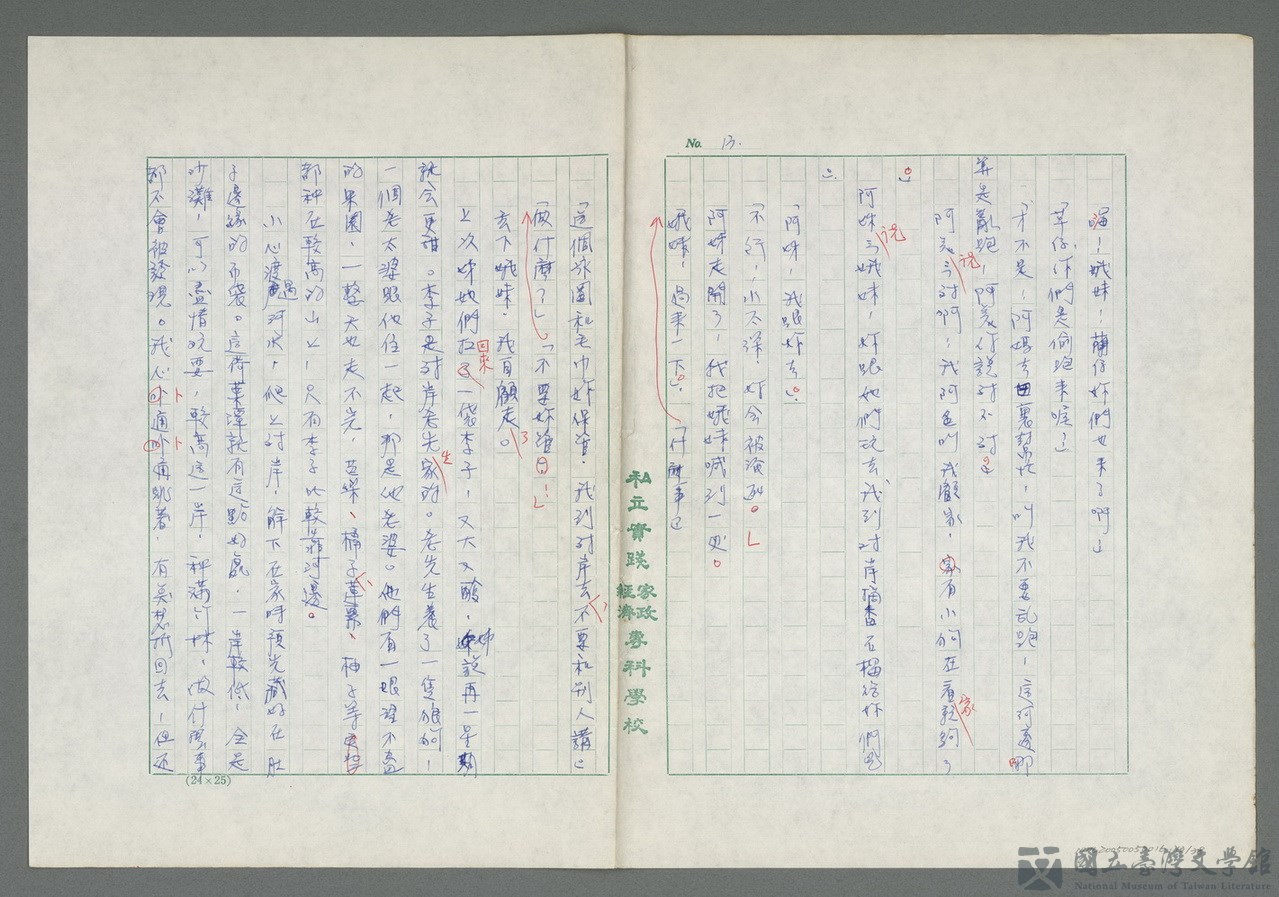 No. 13.
喵!娥妹!蘭仔妳們也來了啊」
「草仔,你們是偷跑來喔」
「才不是!阿媽去田裏幫忙,叫我不要乱跑!這河邊哪
算是亂跑!阿家仔說对不对。」
討啊!我阿爸叫我顧家,家有小狗在看就夠了
。」
阿妹說娥妹!妳跟她們玩去,我到对岸摘番石榴給妳們吃
」。
「阿妹,我跟妳去。」
「不行!水太深!妳会被沖跑。」
阿妹走開了!我把娥妹喊到一处。
娥妹!過來一下。」「什麼事」
「這個泳圈和毛巾妳保管,我到对岸去,不要和別人講」
「做什麼?」「不要妳管!」
丟下娥妹,我自顧走了。
上次姊她們扛回來一袋李子,又大又酸,姊說再一星期
就会更甜。李子是对岸老先生家的。老先生養了一隻狼狗!
一個老太婆跟他住一起,那是他老婆。他們有一眼望不盡
的果園,一整天也走不完,芭樂、橘子、蓮霧、柚子等
都种在較高的山上!只有李子比較靠河邊。
小心渡過河水,爬上对岸,解下在家時預先藏好在肚
子邊緣的布袋。這荷葉潭就有這點好處,一岸較低,全是
沙灘,可以盡情玩耍,較高這一岸,种滿竹林,做什麼事
都不會被發現。我心卟通卟通跳著,有莫想折回去!但还
(24×25)
私立實踐家政經濟專科學校
國立臺灣文學館
National Museum of Taiwan Literature